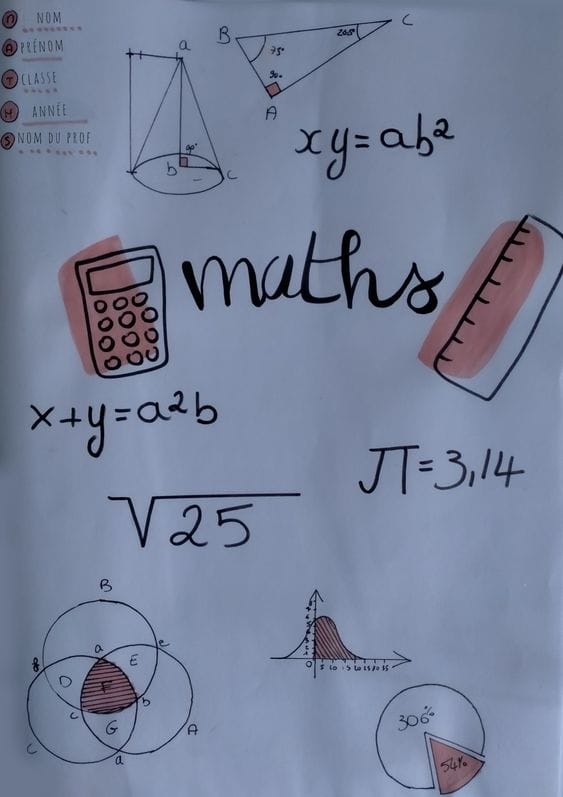 N NOM
A PRÉNOM
T CLASSE
H ANNÉE
S NOM DU PROF
a
b
90°
c
B
C
75°
20.5°
90°
A
xy=ab²
maths
x+y=a²b
π=3,14
√25
B
a
e
E
f
D
F
c
b
G
C
A
d
0 5 10 15 20 25 30 35
306%
54%